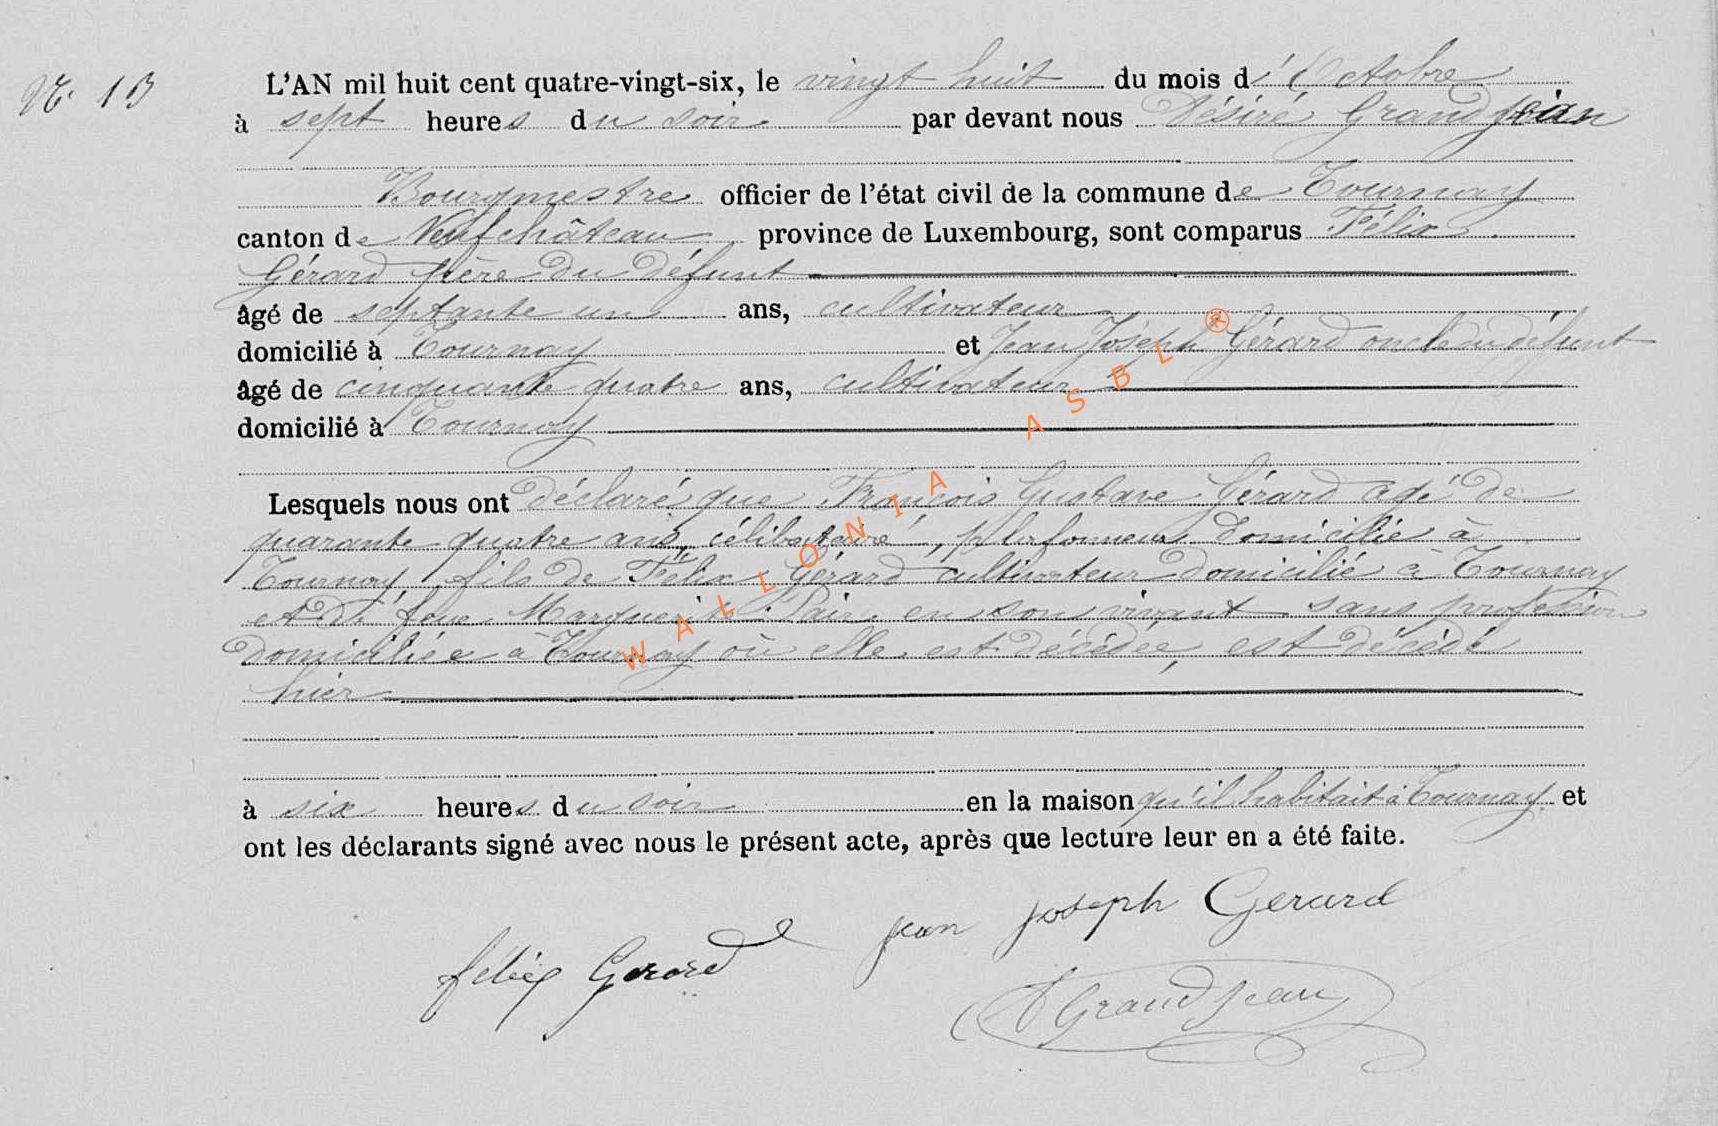 N°. 13
L'AN mil huit cent quatre-vingt-six, le vingt huit du mois d'Octobre
à sept heures du soir par devant nous Désiré Grandjean
Bourgmestre officier de l'état civil de la commune de Tournay
canton de Neufchâteau province de Luxembourg, sont comparus Félix
Gérard père du défunt
âgé de septante un ans, cultivateur
domicilié à Tournay et Jean Joseph Gérard oncle du défunt
âgé de cinquante quatre ans, cultivateur
domicilié à Tournay
Lesquels nous ont déclaré que François Gustave Gérard âgé de
quarante quatre ans, célibataire, plafonneur domicilié à
Tournay, fils de Félix Gérard cultivateur domicilié à Tournay
et de feue Marguerite en son vivant sans profession
domiciliée à Tournay où elle est décédée, est décédé
hier
à six heures du soir en la maison qu'il habitait à Tournay, et
ont les déclarants signé avec nous le présent acte, après que lecture leur en a été faite.
jean joseph Gerard
félix Gerard
D Grandjean
WALLONIA ASBL ®